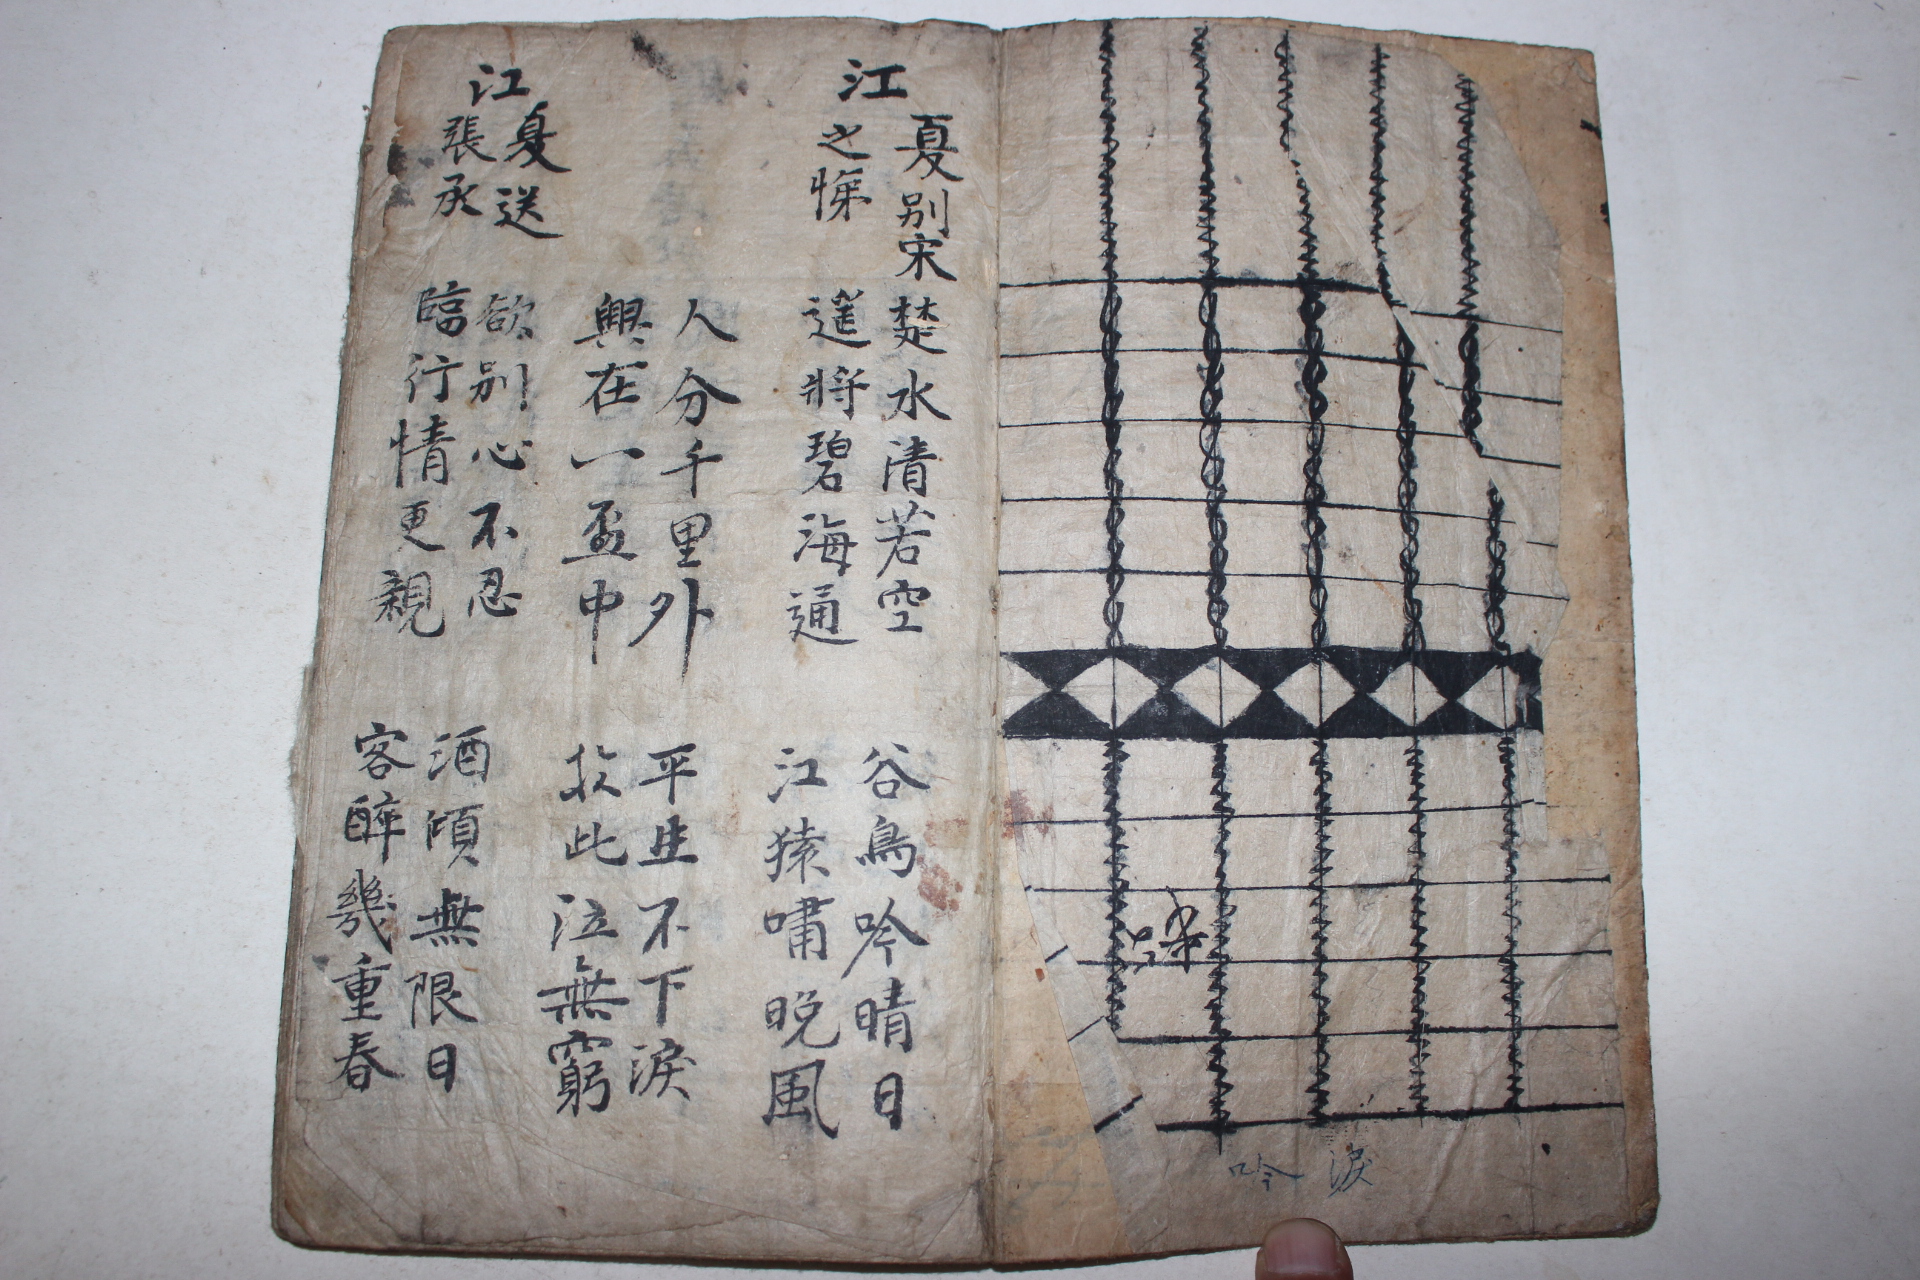 吟 淚
江
夏別宋
之悌
楚水清若空
遙將碧海通
人分千里外
興在一盃中
谷鳥吟晴日
江猿嘯晚風
平生不下淚
於此泣無窮
江
夏送
張承
欲別心不忍
臨行情更親
酒傾無限日
客醉幾重春